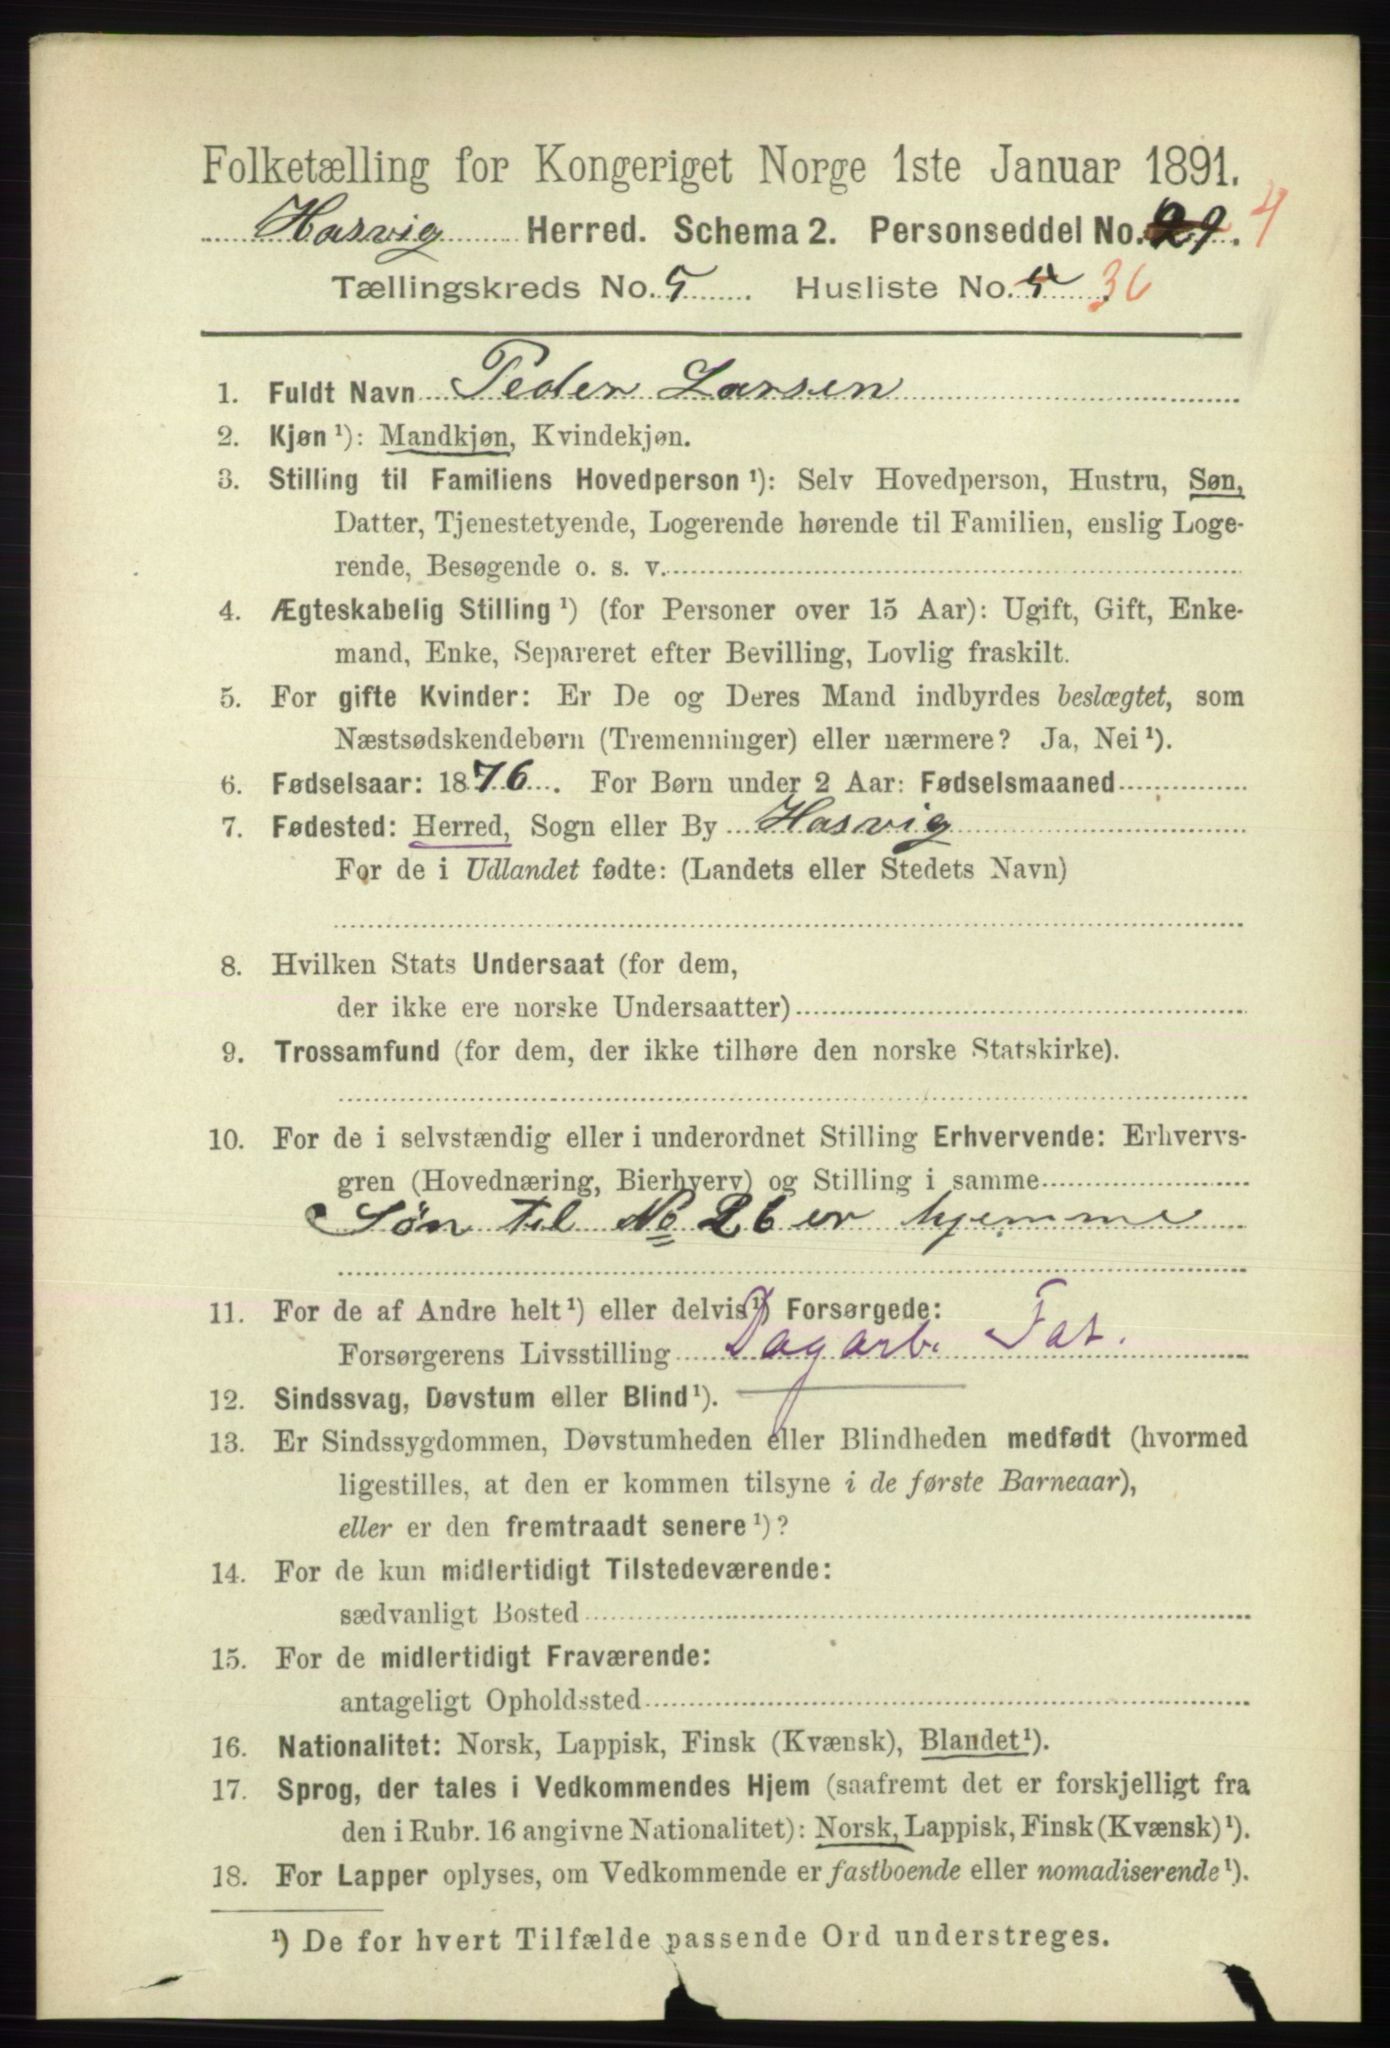 Folketælling for Kongeriget Norge 1ste Januar 1891.
Hasvig Herred. Schema 2. Personseddel No. 29. 4
Tællingskreds No. 5. Husliste No. 5. 36
1. Fuldt Navn Peder Larsen
2. Kjøn ¹): Mandkjøn, Kvindekjøn.
3. Stilling til Familiens Hovedperson ¹): Selv Hovedperson, Hustru, Søn,
Datter, Tjenestetyende, Logerende hørende til Familien, enslig Loge-
rende, Besøgende o. s. v.
4. Ægteskabelig Stilling ¹) (for Personer over 15 Aar): Ugift, Gift, Enke-
mand, Enke, Separeret efter Bevilling, Lovlig fraskilt.
5. For gifte Kvinder: Er De og Deres Mand indbyrdes beslægtet, som
Næstsødskendebørn (Tremenninger) eller nærmere? Ja, Nei ¹).
6. Fødselsaar: 1876. For Børn under 2 Aar: Fødselsmaaned
7. Fødested: Herred, Sogn eller By Hasvig
For de i Udlandet fødte: (Landets eller Stedets Navn)
8. Hvilken Stats Undersaat (for dem,
der ikke ere norske Undersaatter)
9. Trossamfund (for dem, der ikke tilhøre den norske Statskirke).
10. For de i selvstændig eller i underordnet Stilling Erhvervende: Erhvervs-
gren (Hovednæring, Bierhverv) og Stilling i samme
Søn til No 26 er hjemme
11. For de af Andre helt ¹) eller delvis ¹) Forsørgede:
Forsørgerens Livsstilling Dagarb. Fat.
12. Sindssvag, Døvstum eller Blind ¹).
13. Er Sindssygdommen, Døvstumheden eller Blindheden medfødt (hvormed
ligestilles, at den er kommen tilsyne i de første Barneaar),
eller er den fremtraadt senere ¹)?
14. For de kun midlertidigt Tilstedeværende:
sædvanligt Bosted
15. For de midlertidigt Fraværende:
antageligt Opholdssted
16. Nationalitet: Norsk, Lappisk, Finsk (Kvænsk), Blandet ¹).
17. Sprog, der tales i Vedkommendes Hjem (saafremt det er forskjelligt fra
den i Rubr. 16 angivne Nationalitet): Norsk, Lappisk, Finsk (Kvænsk) ¹).
18. For Lapper oplyses, om Vedkommende er fastboende eller nomadiserende ¹).
¹) De for hvert Tilfælde passende Ord understreges.